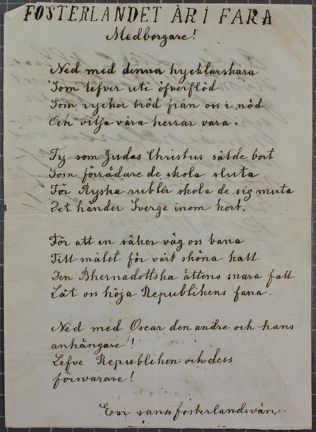 FOSTERLANDET ÄR I FARA
Medborgare!
Ned med denna hycklarskara
Som lefver uti öfverflöd
Som rycker bröd från oss i nöd
Och vilja våra herrar vara.
Ty som Judas Christus sålde bort
Som förrädare de skola sluta
För Ryska rubler skola de sig muta
Det händer Sverge inom kort.
För att en säker väg oss bana
Till målet för vårt sköna hatt
Den Bhernadottska ättens snara fall
Låt oss höja Republikens fana.
Ned med Oscar den andre och hans
anhängare!
Lefve Republiken och dess
försvarare!
En sann fosterlandsvän.